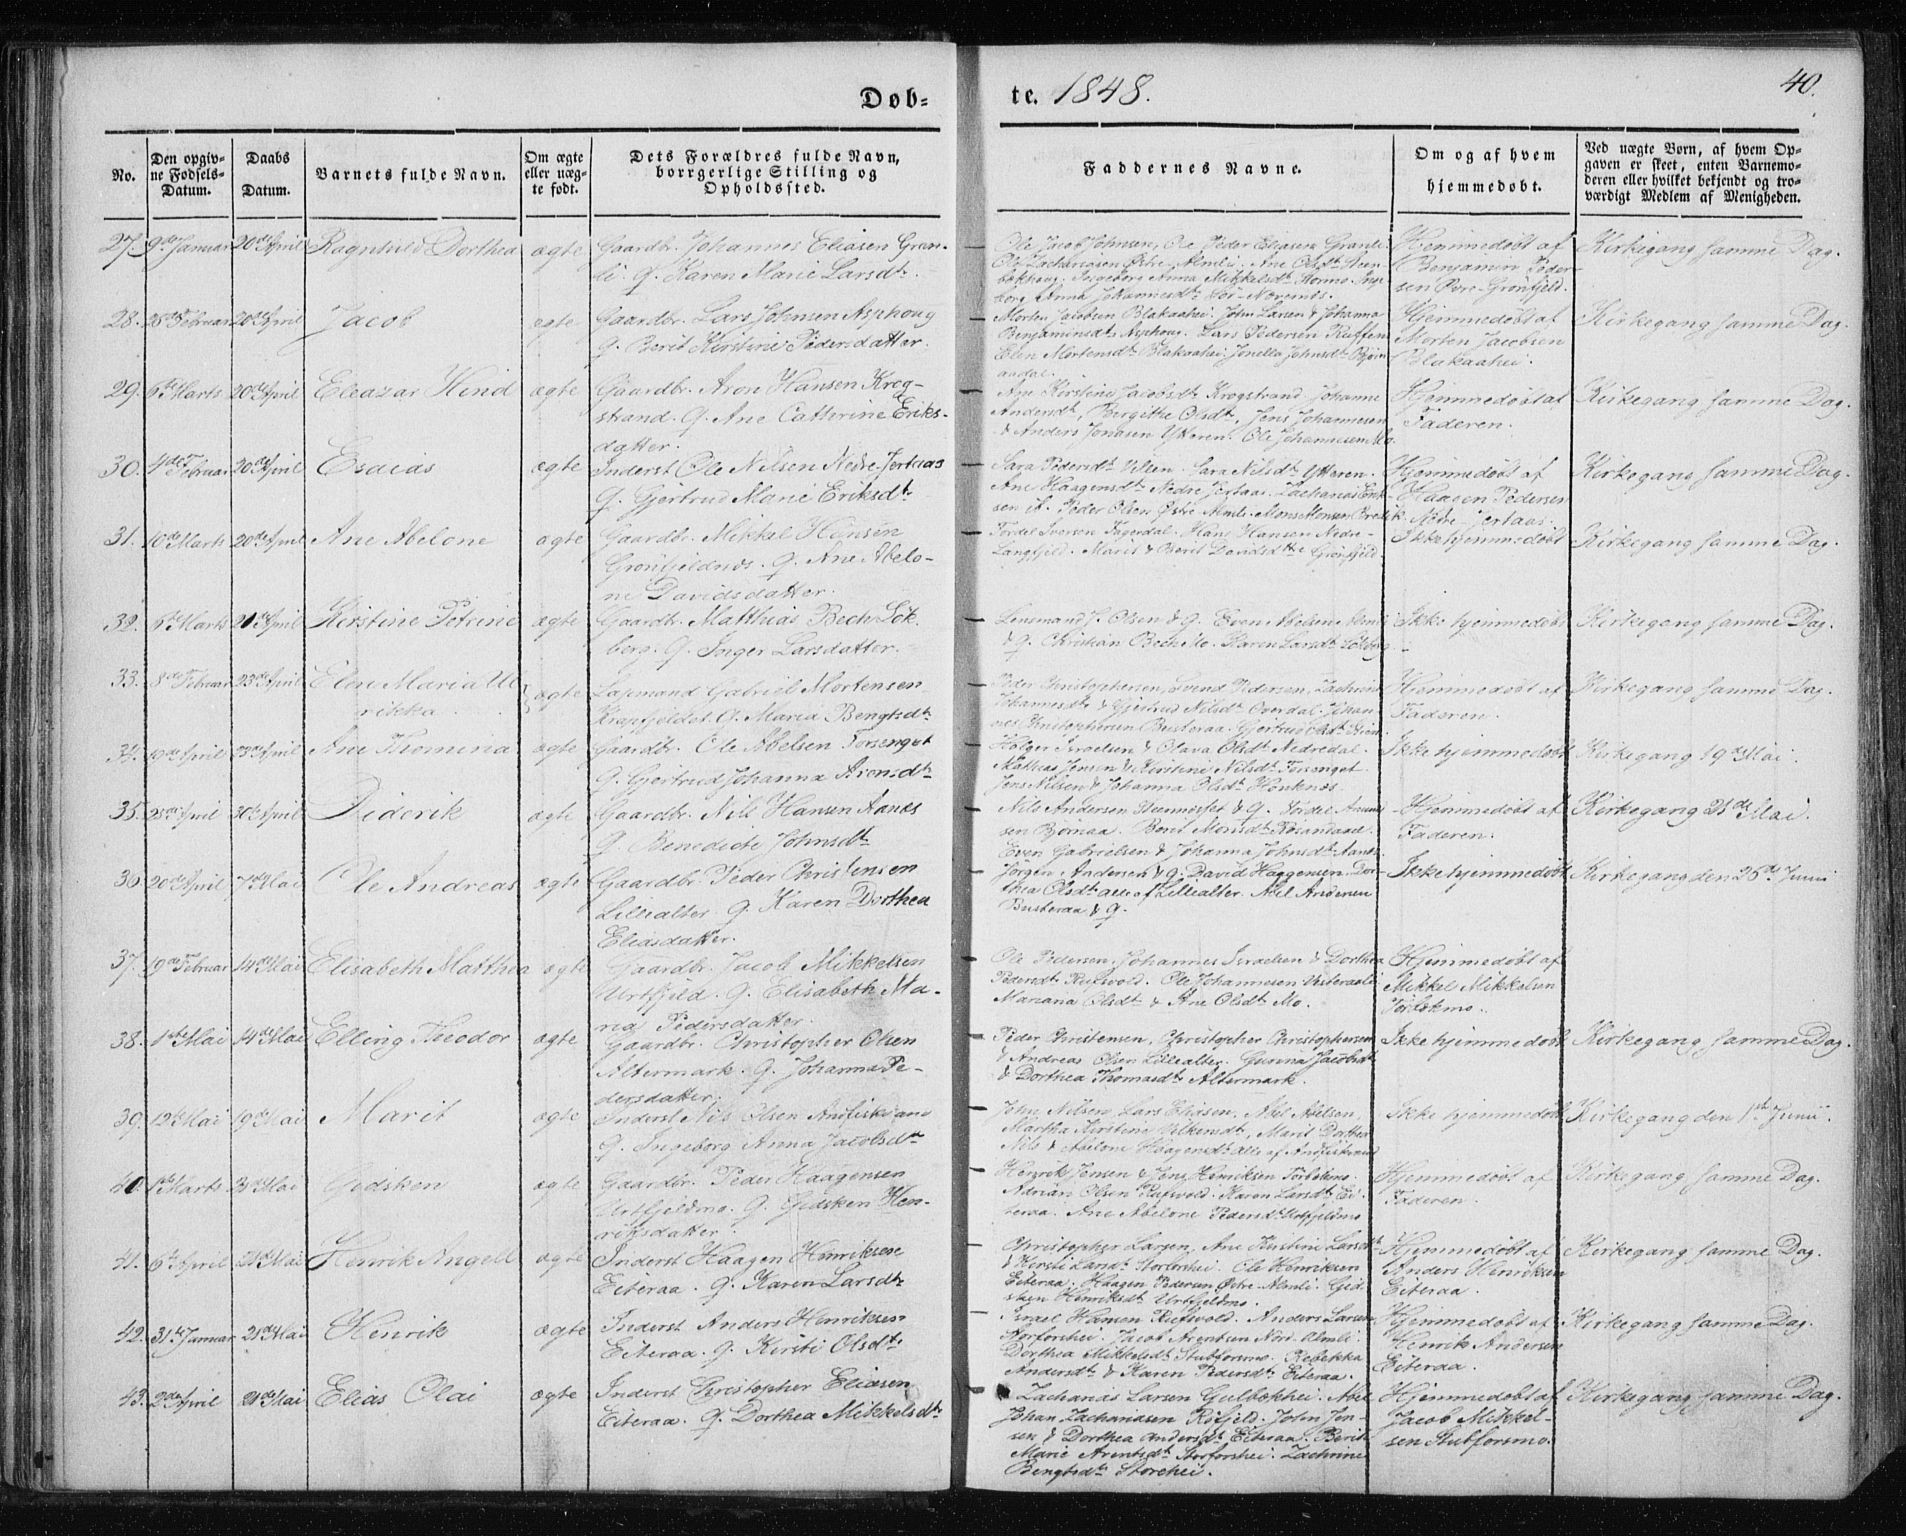 Døb-
te. 1848.
40.
No.
Den opgiv-
ne Fødsels-
Datum.
Daabs
Datum.
Barnets fulde Navn.
Om ægte
eller uæg-
te født.
Dets Forældres fulde Navn,
borrgerlige Stilling og
Opholdssted.
Faddernes Navne.
Om og af hvem
hjemmedøbt.
Ved uægte Børn, af hvem Op-
gaven er skeet, enten Barnemo-
deren eller hvilket bekjendt og tro-
værdigt Medlem af Menigheden.
27. 9de Januar 20de April Ragnhild Dorthea ægte Gaardbr. Johannes Eliasen Gran-
li. G. Karen Marie Larsdtr.
Ole Jacob Johnsen, Ole Peder Eliasen Granli.
Ole Zachariasen Østre-Almli. Ane Olsdtr
Ingeborg Anna Mikkelsdtr Inge-
borg Anna Johannesdtr
Hjemmedøbt af
Benjamin Peder-
sen Øvre-Grønfjeld.
Kirkegang samme Dag.
28. 28de Februar 20de April Jacob ægte Gaardbr. Lars Johnsen Asphoug
G. Berit Kirstine Pedersdatter.
Morten Jacobsen Blakaahei. John Larsen & Johanna
Benjaminsdtr Asphoug. Lars Pedersen
Elen Mortensdtr Blakaahei. Jonella Johnsdtr Bjørn-
aadal.
Hjemmedøbt af
Morten Jacobsen
Blakaahei.
Kirkegang samme Dag.
29. 6te Marts 20de April Eleazar Hind ægte Gaardbr. Aron Hansen Krog-
strand. G. Ane Cathrine Eriks-
datter.
Ane Kirstine Jacobsdtr Krogstrand. Johanne
Andersdtr, Birgithe Olsdtr, Jens Johannesen
& Anders Jonasen Ytteren. Ole Johannesen Mo.
Hjemmedøbt af
Faderen.
Kirkegang samme Dag.
30. 4de Februar 20de April Esaias ægte Inderst Ole Nilsen Nedre-Jertaas
G. Gjertrud Marie Eriksdtr.
Sara Pedersdtr Sara Nilsdtr Ytteren.
Ane Haagensdtr Nedre Jertaas. Zacharias Erik-
sen Peder Olsen Østre Almli. Mons Monsen
Hjemmedøbt af
Haagen Pedersen
Nedre-Jertaas.
Kirkegang samme Dag.
31. 10de Marts 20de April Ane Abelone ægte Gaardbr. Mikkel Hansen
Grønfjeldnæs. G. Ane Abelo-
ne Davidsdatter.
Tordel Iversen Fagerdal. Hans Hansen Nedre-
Langfjeld. Marit & Berit Davidsdtre Grønfjeld
Ikke hjemmedøbt
Kirkegang samme Dag.
32. 6te Marts 21de April Kirstine Petrine ægte Gaardbr. Matthias Bech Sel-
berg. G. Inger Larsdatter.
Lensmand J. Olsen & G. Even Abelsen
& G. Christian Bech Mo. Karen Larsdtr
Ikke hjemmedøbt
Kirkegang samme Dag.
33. 8de Februar 23de April Elen Maria Ul-
rikka. ægte Lapmand Gabriel Mortensen
Krapfjeldet. G. Maria Bengtsdtr
Peder Christophersen, Svend Pedersen, Zachrine
Johannesdtr & Gjertrud Nilsdtr Overdal. Johan-
nes Christophersen Busteraa. Gjertrud Olsdtr
Hjemmedøbt af
Faderen.
Kirkegang samme Dag.
34. 19de April 23de April Ane Thomina ægte Gaardbr. Ole Abelsen Forsenget
G. Gjertrud Johanna Aronsdtr
Holger Israelsen & Olava Olsdtr Nedredal.
Mathias Jensen & Kirstine Nilsdtr Forsenget.
Jens Nilsen & Johanna Olsdtr Houknes.
Ikke hjemmedøbt
Kirkegang 19de Mai.
35. 23de April 30te April Diderik ægte Gaardbr. Nils Hansen Aanes
G. Benedicte Johnsdtr
Nils Andersen & G. Tordel
sen Bjørnaa. Berit Monsdtr
Even Gabrielsen & Johanna Johnsdtr Aanes.
Hjemmedøbt af
Faderen.
Kirkegang 21de Mai.
36. 20de April 7de Mai Ole Andreas ægte Gaardbr. Peder Christensen
Lillealter. G. Karen Dorthea
Eliasdatter.
Jørgen Andersen & G. David Haagensen. Dor-
thea Olsdtr alle af Lillealter. Abel Andersen
Busteraa & G.
Ikke hjemmedøbt
Kirkegang den 25de Junii
37. 19de Februar 14de Mai Elisabeth Matthea ægte Gaardbr. Jacob Mikkelsen
Urtfjeld. G. Elisabeth Ma-
ria Pedersdatter.
Ole Pedersen. Johannes Israelsen & Dorthea
Pedersdtr Rufsvold. Ole Johannesen Vesteraali
Mariana Olsdtr & Ane Olsdtr Mo.
Hjemmedøbt af
Mikkel Mikkelsen
Tørbekmo.
38. 1ste Mai 14de Mai Elling Theodor ægte Gaardbr. Christopher Olsen
Altermark. G. Johanna Pe-
dersdatter.
Peder Christensen, Christopher Christophersen
& Andreas Olsen Lillealter. Gunna Jacobsdtr
& Dorthea Thomasdtr Altermark.
Ikke hjemmedøbt
Kirkegang samme Dag.
39. 12te Mai 19de Mai Marit ægte Inderst Nils Olsen Andfiskvand
G. Ingeborg Anna Jacobsdtr
John Nilsen, Lars Eliasen, Abel Abelsen,
Martha Kirstine Velkensdtr, Marit Dorthea
Nils & Abelone Haagensdtr alle af Andfiskvand
Ikke hjemmedøbt
Kirkegang den 1ste Junii.
40. 1ste Marts 21de Mai Gidsken ægte Gaardbr. Peder Haagensen
Urtfjeldmo. G. Gidsken Hen-
riksdatter.
Henrik Jensen & Jens Henriksen Tørbekmo.
Adrian Olsen Rufsvold. Karen Larsdtr Ei-
teraa. Ane Abelone Pedersdtr Urtfjeldmo
Hjemmedøbt af
Faderen.
Kirkegang samme Dag.
41. 6te April 21de Mai Henrik Angell ægte Inderst Haagen Henriksen
Eiteraa. G. Karen Larsdtr
Christopher Larsen, Ane Kirstine Larsdtr
& Kirsti Larsdtr Storforshei. Ole Henriksen
Eiteraa. Haagen Pedersen Østre-Almli. Gid-
sken Henriksdtr Urtfjeldmo.
Hjemmedøbt af
Anders Henriksen
Eiteraa.
Kirkegang samme Dag.
42. 31te Januar 21de Mai Henrik ægte Inderst Anders Henriksen
Eiteraa. G. Kirsti Olsdtr.
Israel Hansen Rufsvold. Anders Larsen
Storforshei. Jacob Arentsen Nord-Almli.
Dorthea Mikkelsdtr Stubforsmo. Rebekka
Andersdtr & Karen Pedersdtr Eiteraa.
Hjemmedøbt af
Henrik Andersen
Eiteraa.
Kirkegang samme Dag.
43. 2de April 21de Mai Elias Olai ægte Inderst Christopher Eliasen
Eiteraa. G. Dorthea Mikkelsdtr
Zacharias Larsen Gulbekhei. Abel
Johan Zachariasen Røfjeld. John Jen-
sen & Dorthea Andersdtr Eiteraa. Berit
Marie Arentsdtr Storforshei. Zachrine
Bengtsdtr Storehei.
Hjemmedøbt af
Jacob Mikkel-
sen Stubforsmo.
Kirkegang samme Dag.